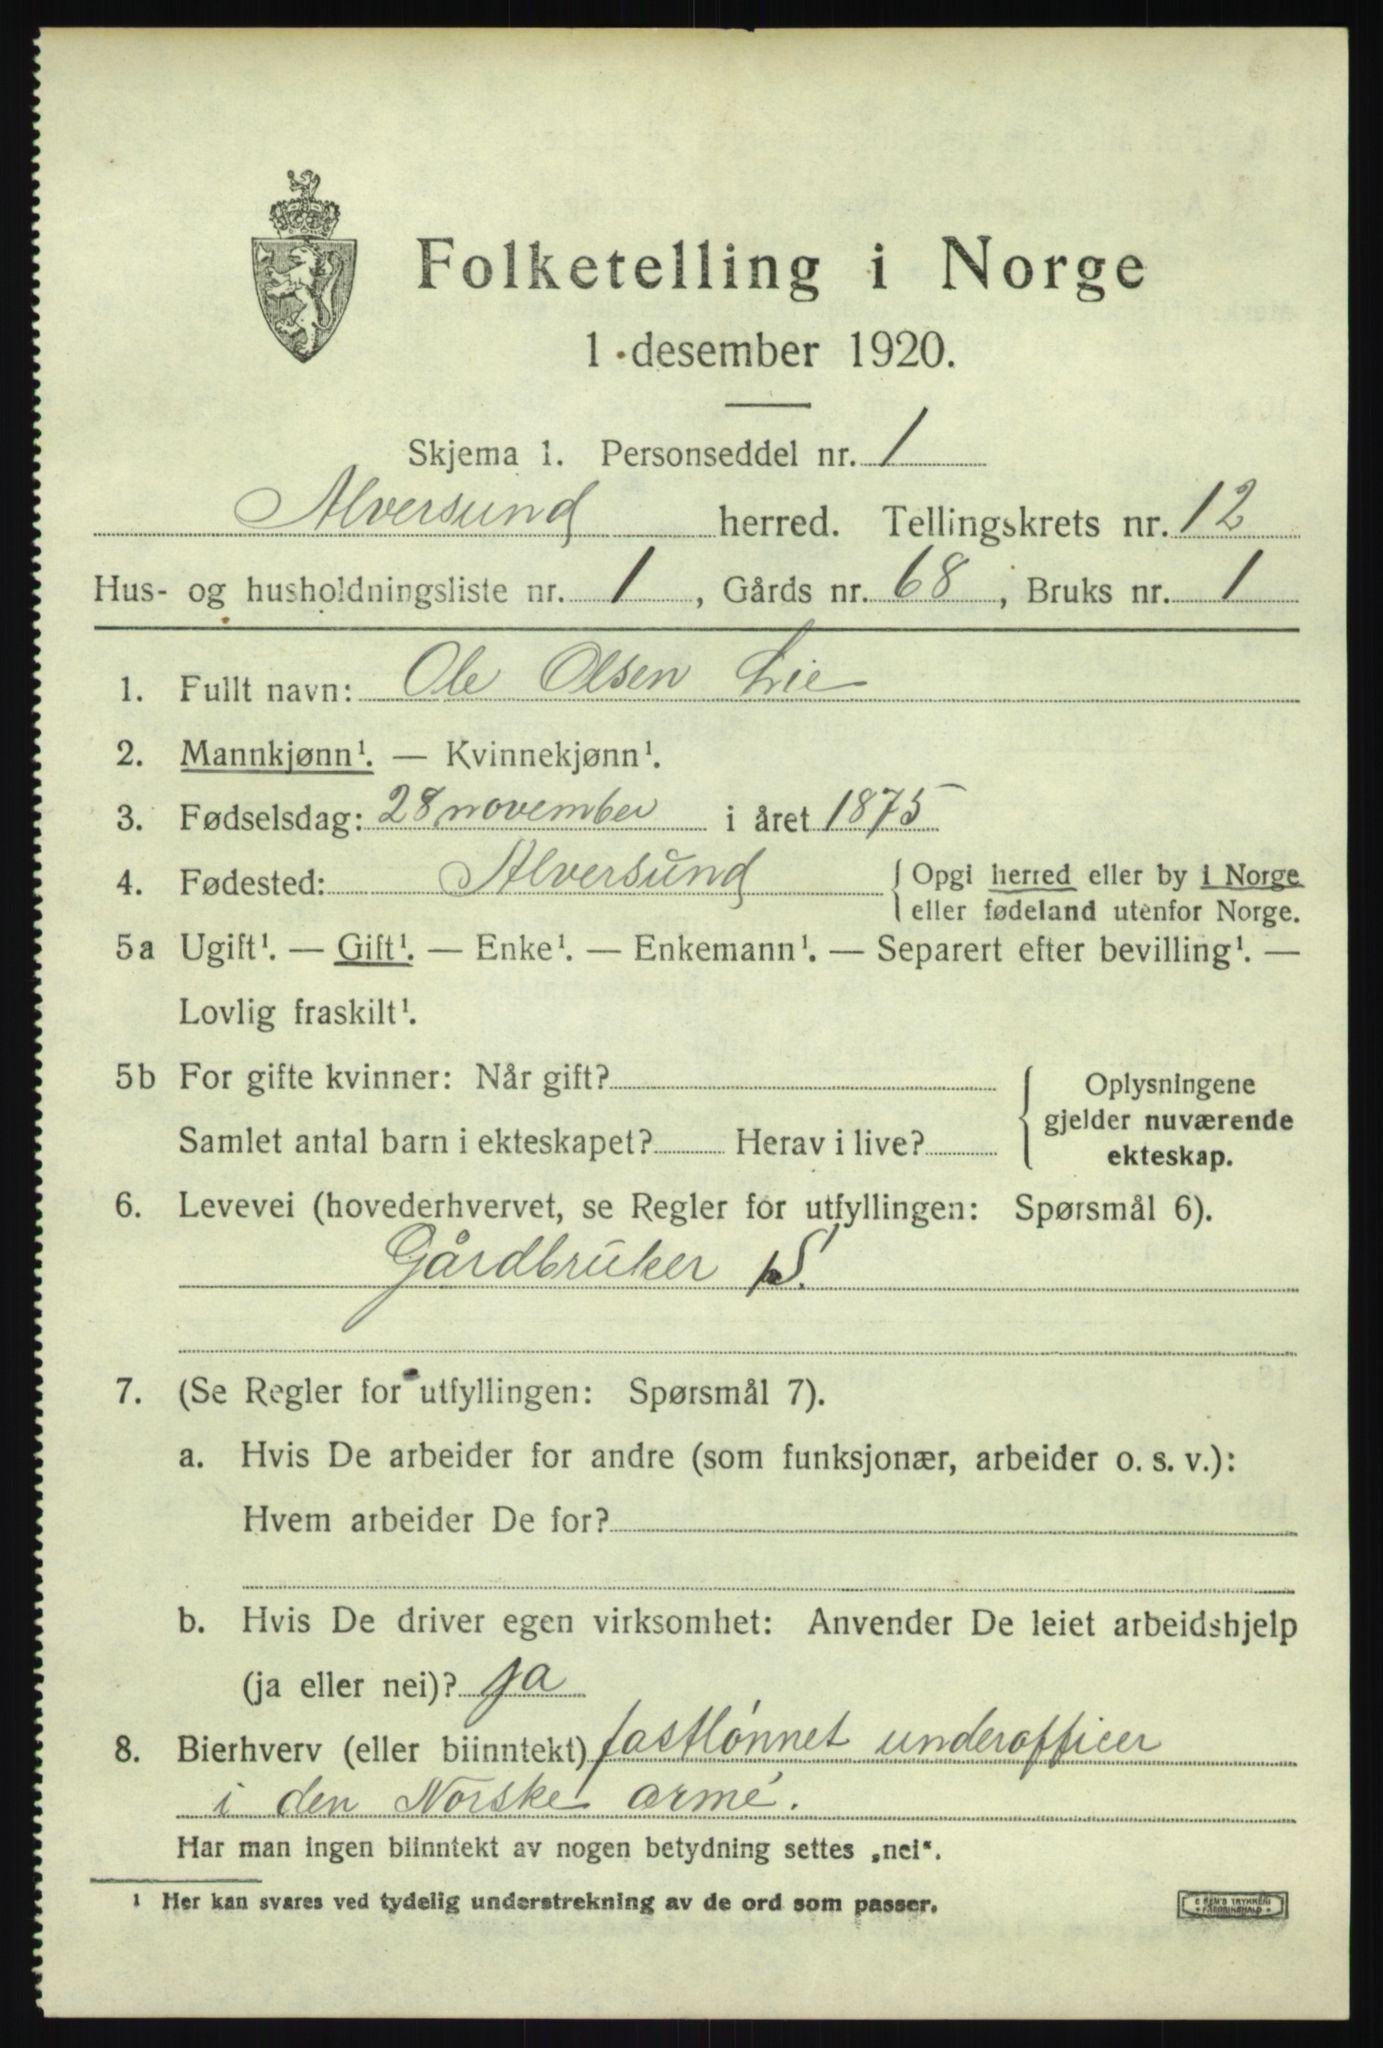 Folketelling i Norge
1 desember 1920.
Skjema 1. Personseddel nr. 1
Alversund herred. Tellingskrets nr. 12
Hus- og husholdningsliste nr. 1, Gårds nr. 68, Bruks nr. 1
1. Fullt navn: Ole Olsen Lie
2. Mannkjønn¹. — Kvinnekjønn¹.
3. Fødselsdag: 28 november i året 1875
4. Fødested: Alversund { Opgi herred eller by i Norge
eller fødeland utenfor Norge.
5a Ugift¹. — Gift¹. — Enke¹. — Enkemann¹. — Separert efter bevilling¹. —
Lovlig fraskilt¹.
5b For gifte kvinner: Når gift?
Samlet antal barn i ekteskapet? Herav i live?
{ Oplysningene
gjelder nuværende
ekteskap.
6. Levevei (hovederhvervet, se Regler for utfyllingen: Spørsmål 6).
Gårdbruker S.
7. (Se Regler for utfyllingen: Spørsmål 7).
a. Hvis De arbeider for andre (som funksjonær, arbeider o. s. v.):
Hvem arbeider De for?
b. Hvis De driver egen virksomhet: Anvender De leiet arbeidshjelp
(ja eller nei)? ja
8. Bierhverv (eller biinntekt) fastlønnet underofficer
i den Norske armé.
Har man ingen biinntekt av nogen betydning settes „nei“.
¹ Her kan svares ved tydelig understrekning av de ord som passer.